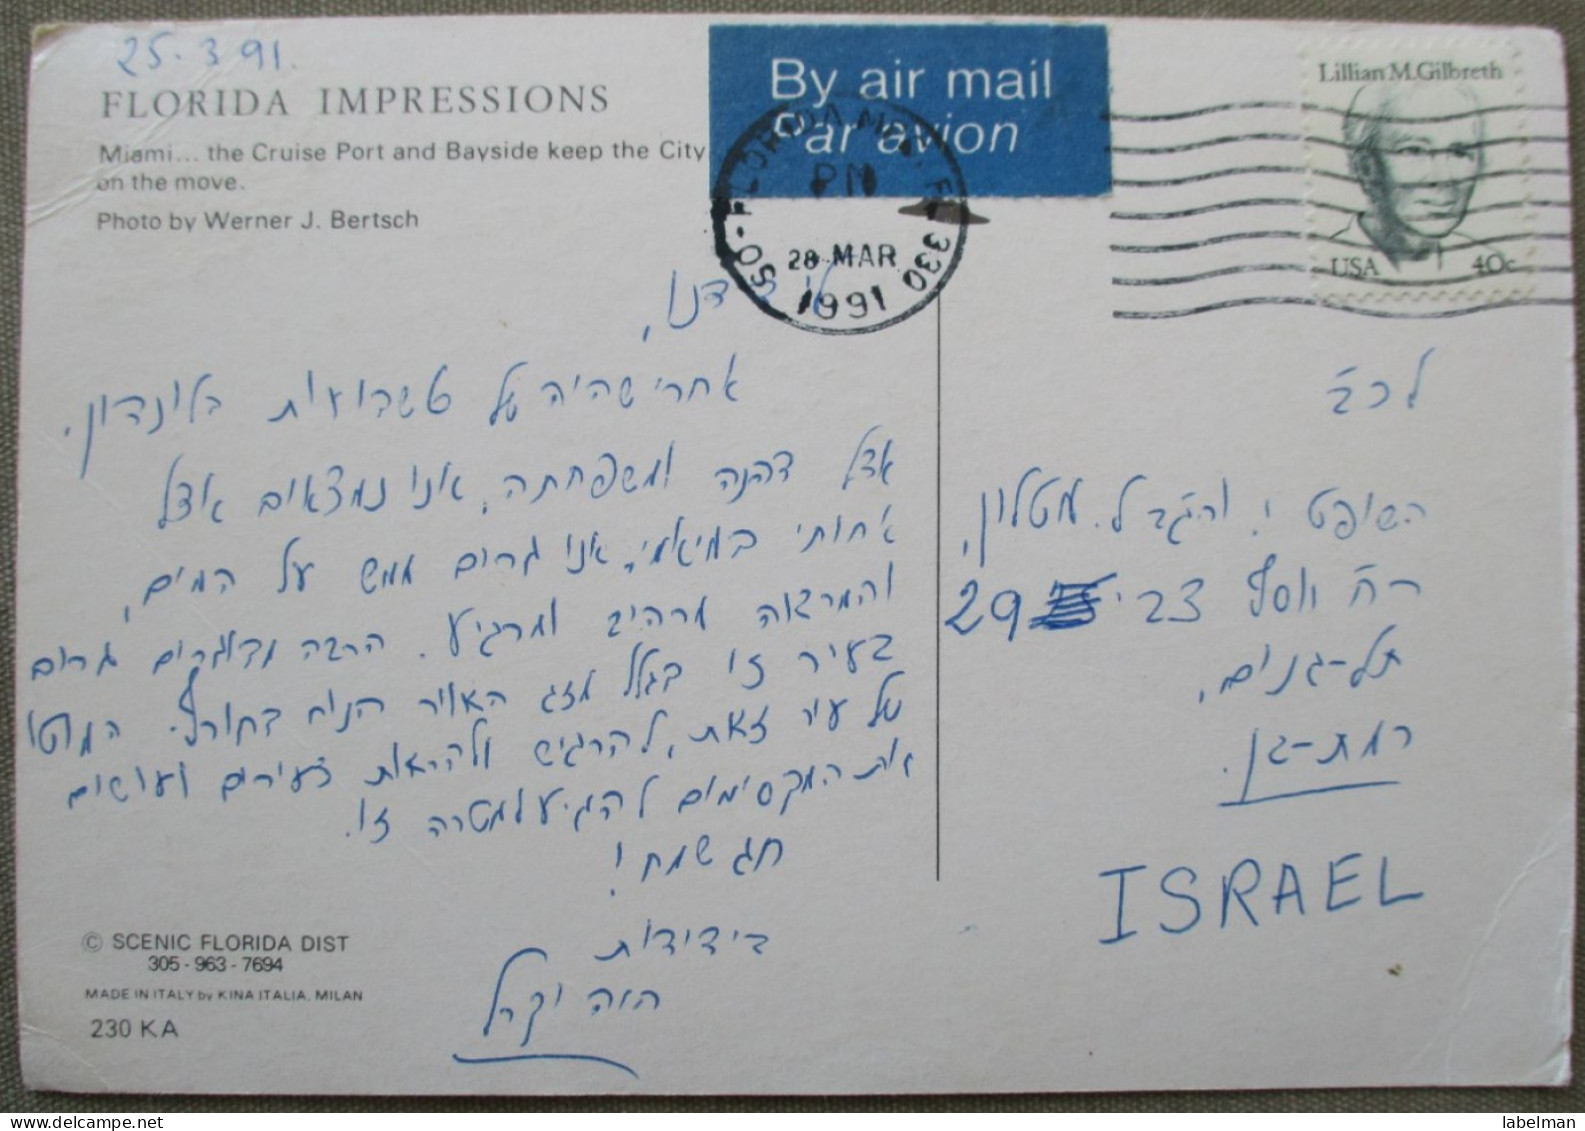 25.3.91.
FLORIDA IMPRESSIONS
Miami... the Cruise Port and Bayside keep the City
on the move.
Photo by Werner J. Bertsch
By air mail
Par avion
PM
28 MAR
1991
Lillian M. Gilbreth
USA 40c
אחרי שהיה של שבועות בלונדון,
אצל ומשפחתה, אנו נמצאים אצל
אחותי במיאמי, אנו גרים ממש על המים,
והמראה מרהיב ומרגיע. הרבה מבוגרים גרים
בעיר זו בגלל מזג האויר הנוח בחורף. המוטו
של עיר זאת, להרגיש ולהראות צעירים ועושים
את המקסימום להגיע למטרה זו.
חג שמח!
בידידות
חוה וקרל
לכב'
השופט י. והגב' ל. מטלון,
רח' יוסף צבי 29
תל-גנים,
רמת-גן.
ISRAEL
© SCENIC FLORIDA DIST
305-963-7694
MADE IN ITALY by KINA ITALIA. MILAN
230 KA
labelman